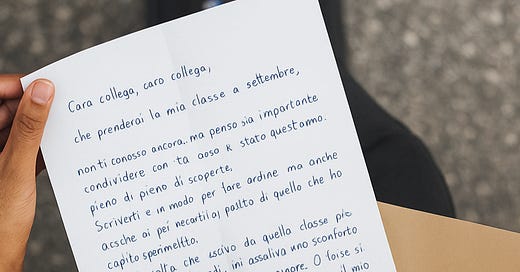 Cara collega, caro collega,
che prenderai la mia classe a settembre,
non ti conosso ancora, ma penso sia importante
condividere con ta aoso k stato quest'anno.
pieno di pieno di scoperte,
Scriverti e in modo per fare ordine ma anche
acsche ai pei al di quello che ho
capito
che uscivo da quella classe
ini assaliva uno sconforto
O si
mio